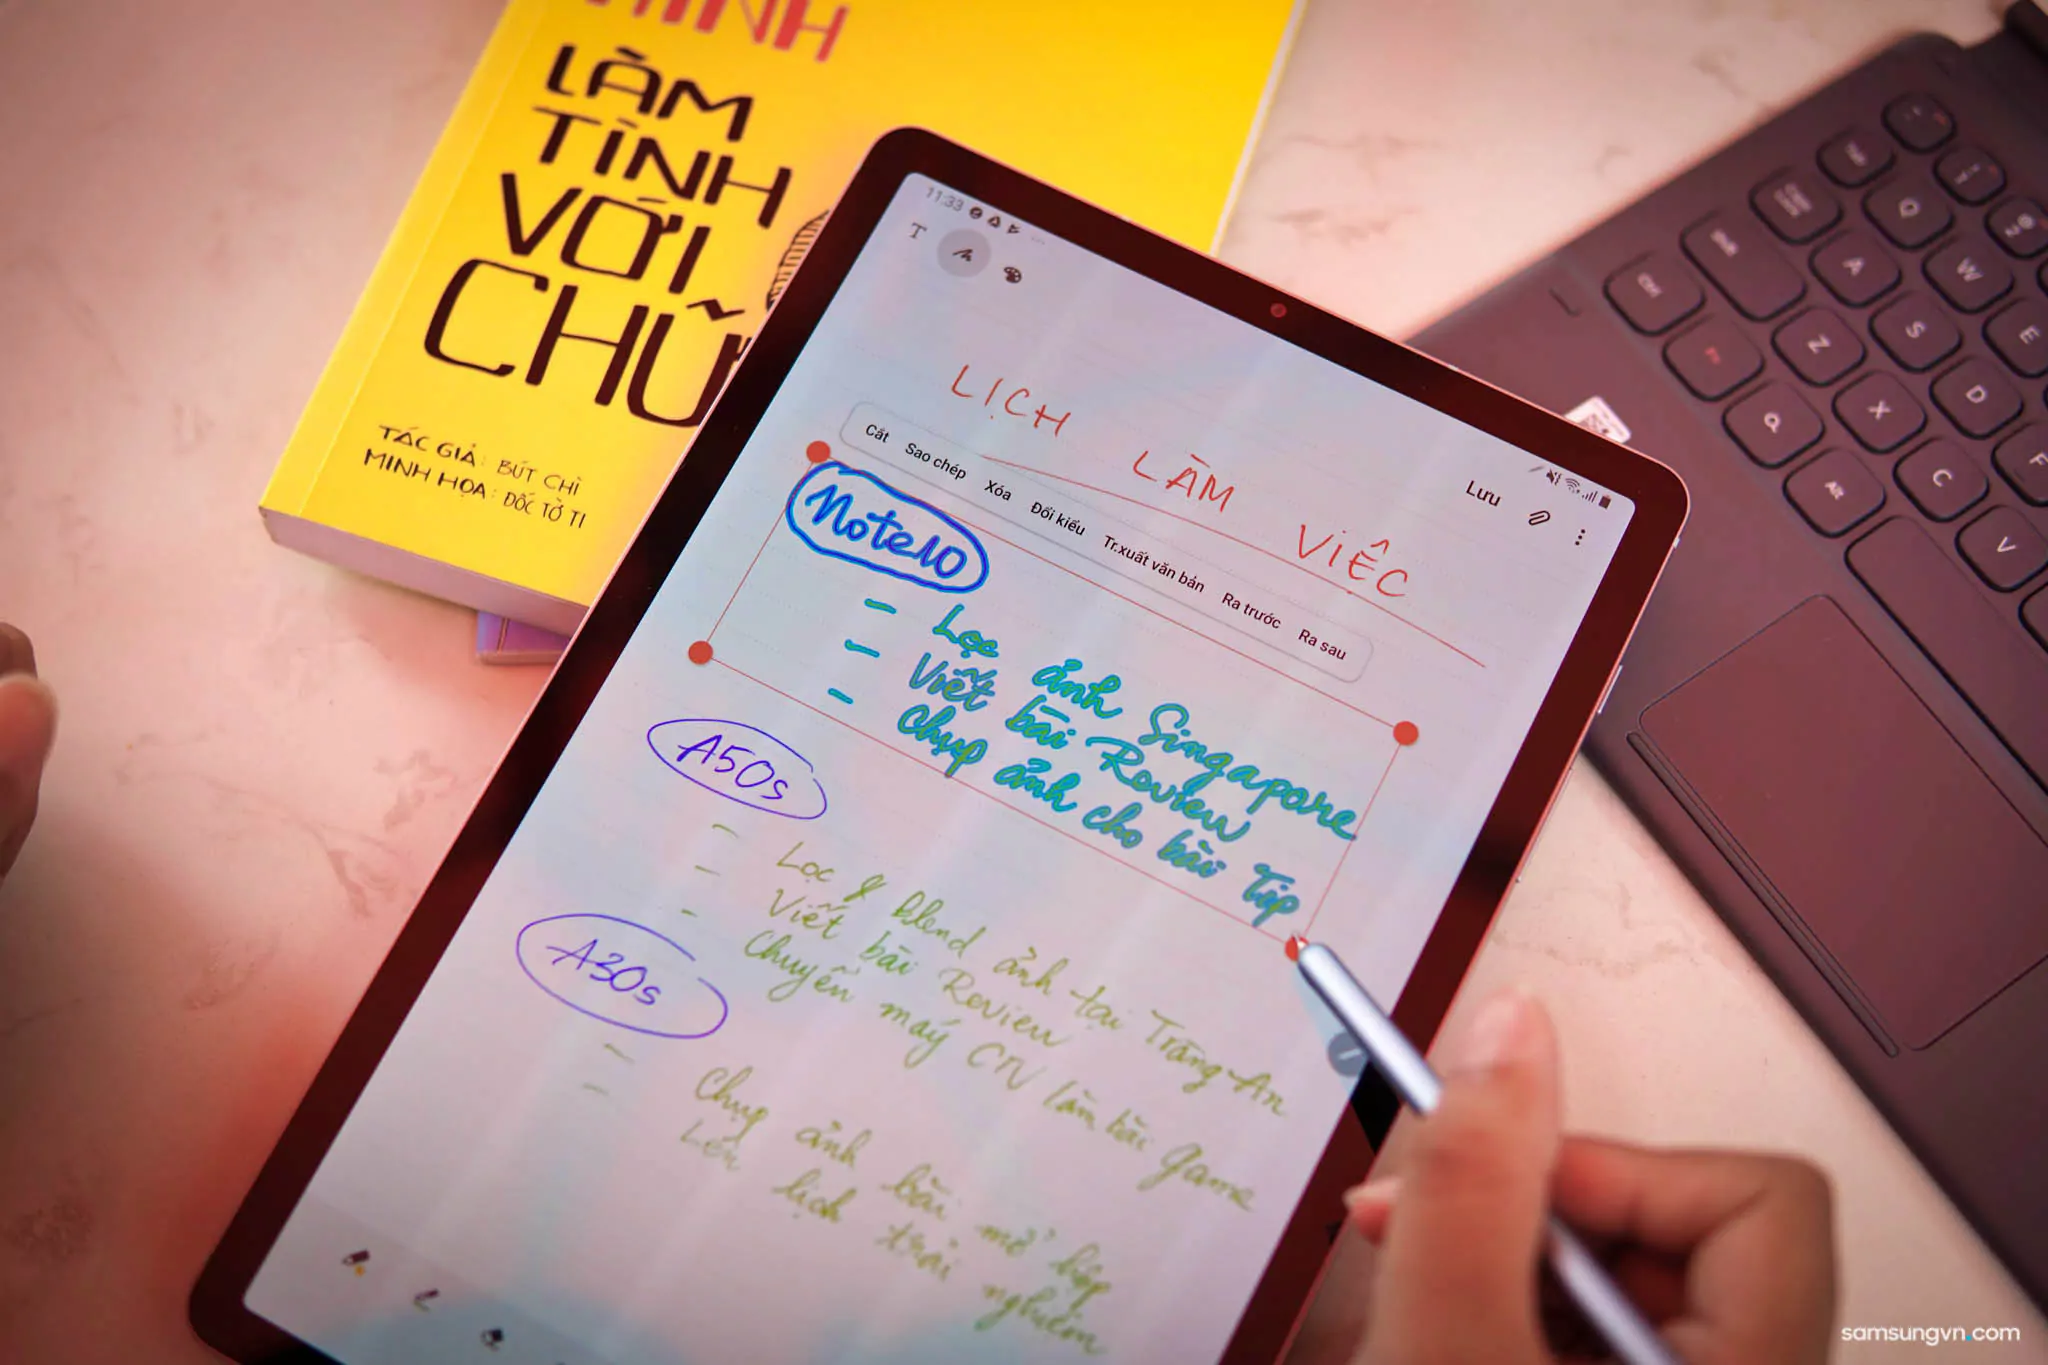 MINH
LÀM
TÌNH
VỚI
CHỮ
TÁC GIẢ: BÚT CHÌ
MINH HỌA: ĐỐC TỜ TI
11:33
T
Lưu
LỊCH LÀM VIỆC
Cắt Sao chép Xóa Đổi kiểu Tr.xuất văn bản Ra trước Ra sau
Note10
- Lọc ảnh Singapore
- Viết bài Review
- Chụp ảnh cho bài Tip
A50s
- Lọc & blend ảnh tại Tràng An
- Viết bài Review
- Chuyển máy CTV làm bài game
A30s
- Chụp ảnh bài mở hộp
- Lên lịch trải nghiệm
Tab
Q
W
2
A
S
E
Shift
Ctrl
Fn
Z
X
D
Alt
C
F
V
samsungvn.com